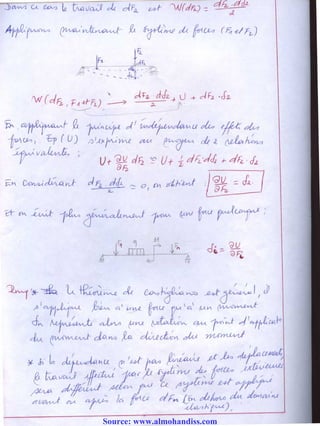 Dans ce cas le travail de dF₂ est W(dF₂) = dF₂ · dδ₂ / 2
Appliquons maintenant le système de forces (F₁ et F₂)
F₂
F₁ dδ₂
W(dF₂, F₁ et F₂) → dF₂ · dδ₂ / 2 + U + dF₂ · δ₂
En appliquant le principe d'indépendance des effets des
forces, Ep(U) s'exprime au moyen de 2 relations
équivalentes :
U + ∂U/∂F₂ dF₂ = U + 1/2 dF₂ · dδ₂ + dF₂ · δ₂
En considérant dF₂ · dδ₂ / 2 ≈ 0, on obtient ∂U/∂F₂ = δ₂
et on écrit plus généralement pour une force quelconque :
q M
δᵢ = ∂U/∂Fᵢ
Rmq * Le théorème de Castigliano est général, il
s'applique bien à une force qu'à un moment
δn représente alors une rotation au point d'application
du moment dans la direction du moment
* Si la dépendance n'est pas linéaire et les déplacements,
le travail effectué par le système des forces extérieures
sera différent selon que ce système est appliqué
avant ou après la force dFn (En dehors du domaine
élastique).
Source: www.almohandiss.com